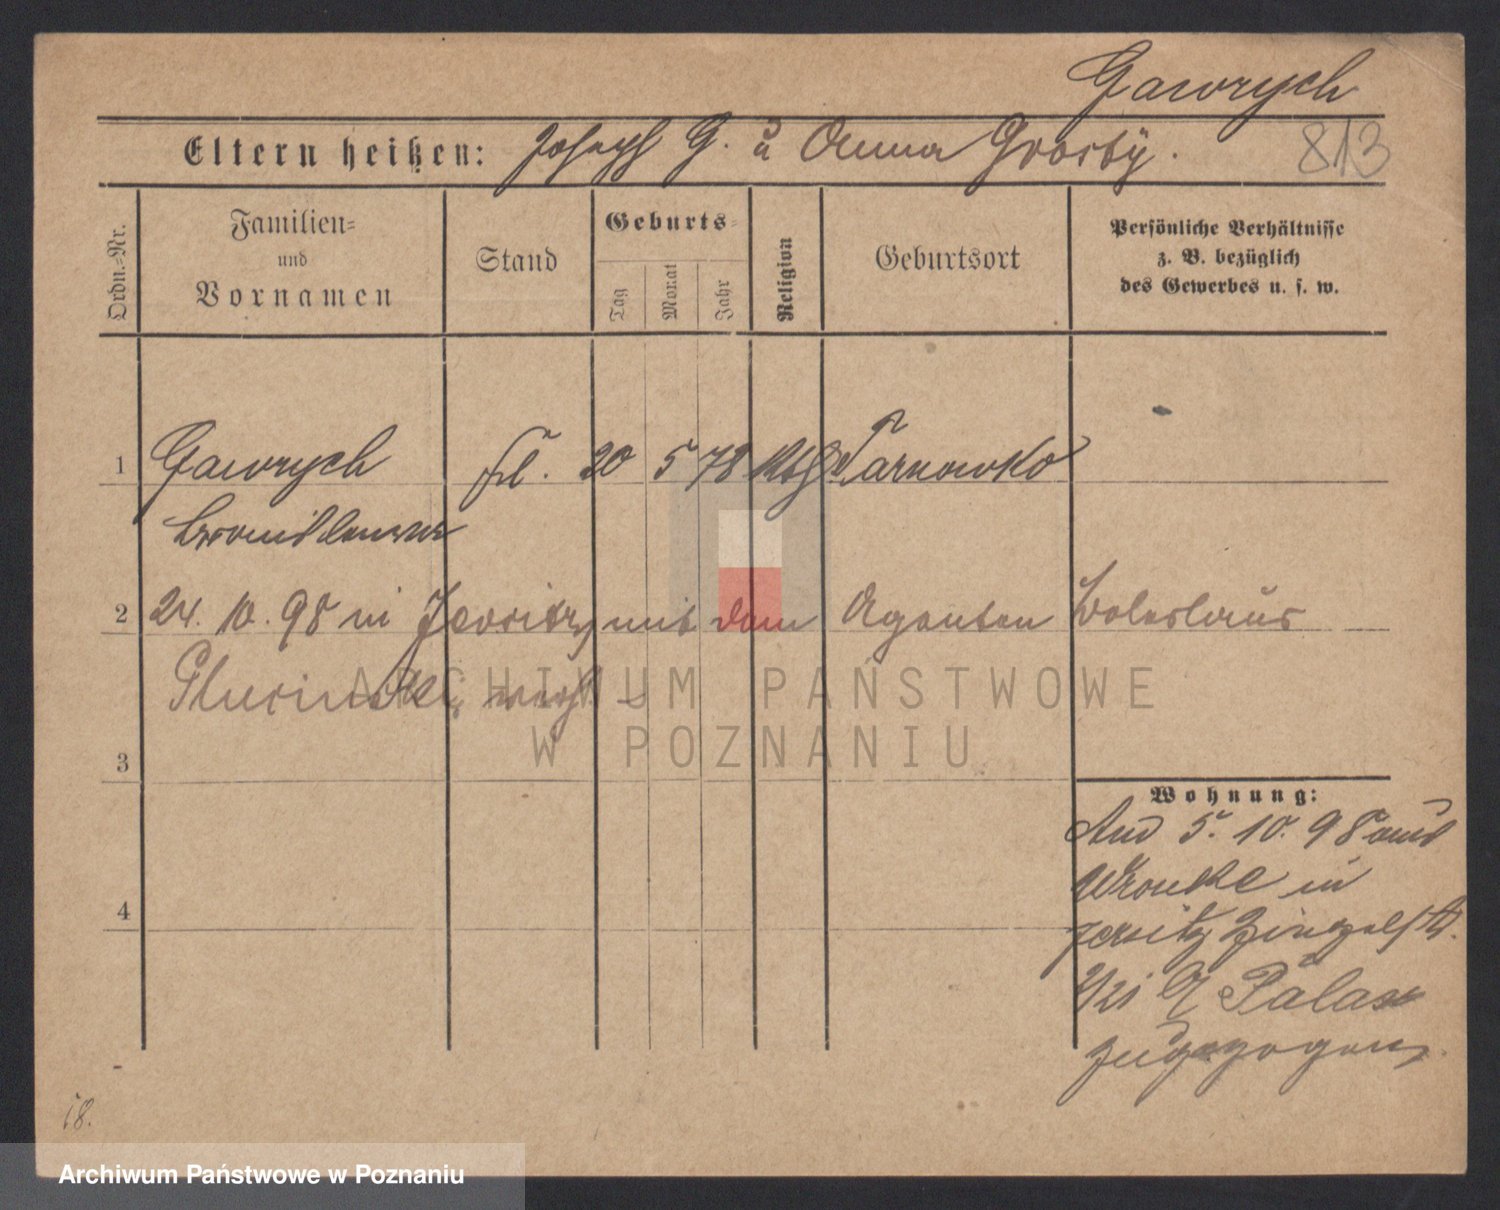 Gawrych
Eltern heißen: Joseph G. u Anna Grosty.
813
Ordn.=Nr.
Familien=
und
Vornamen
Stand
Geburts=
Tag
Monat
Jahr
Religion
Geburtsort
Persönliche Verhältnisse
z. B. bezüglich
des Gewerbes u. s. w.
1 Gawrych Frl. 20 5 78 kth Tarnowko
Bronislawa
2 24. 10. 98 in Jersitz mit dem Agenten Boleslaus
verh.
ARCHIWUM PAŃSTWOWE
W POZNANIU
3
Wohnung:
5. 10. 98 aus
Wronke in
4
Jersitz
Palasz
zugezogen.
18.
Archiwum Państwowe w Poznaniu